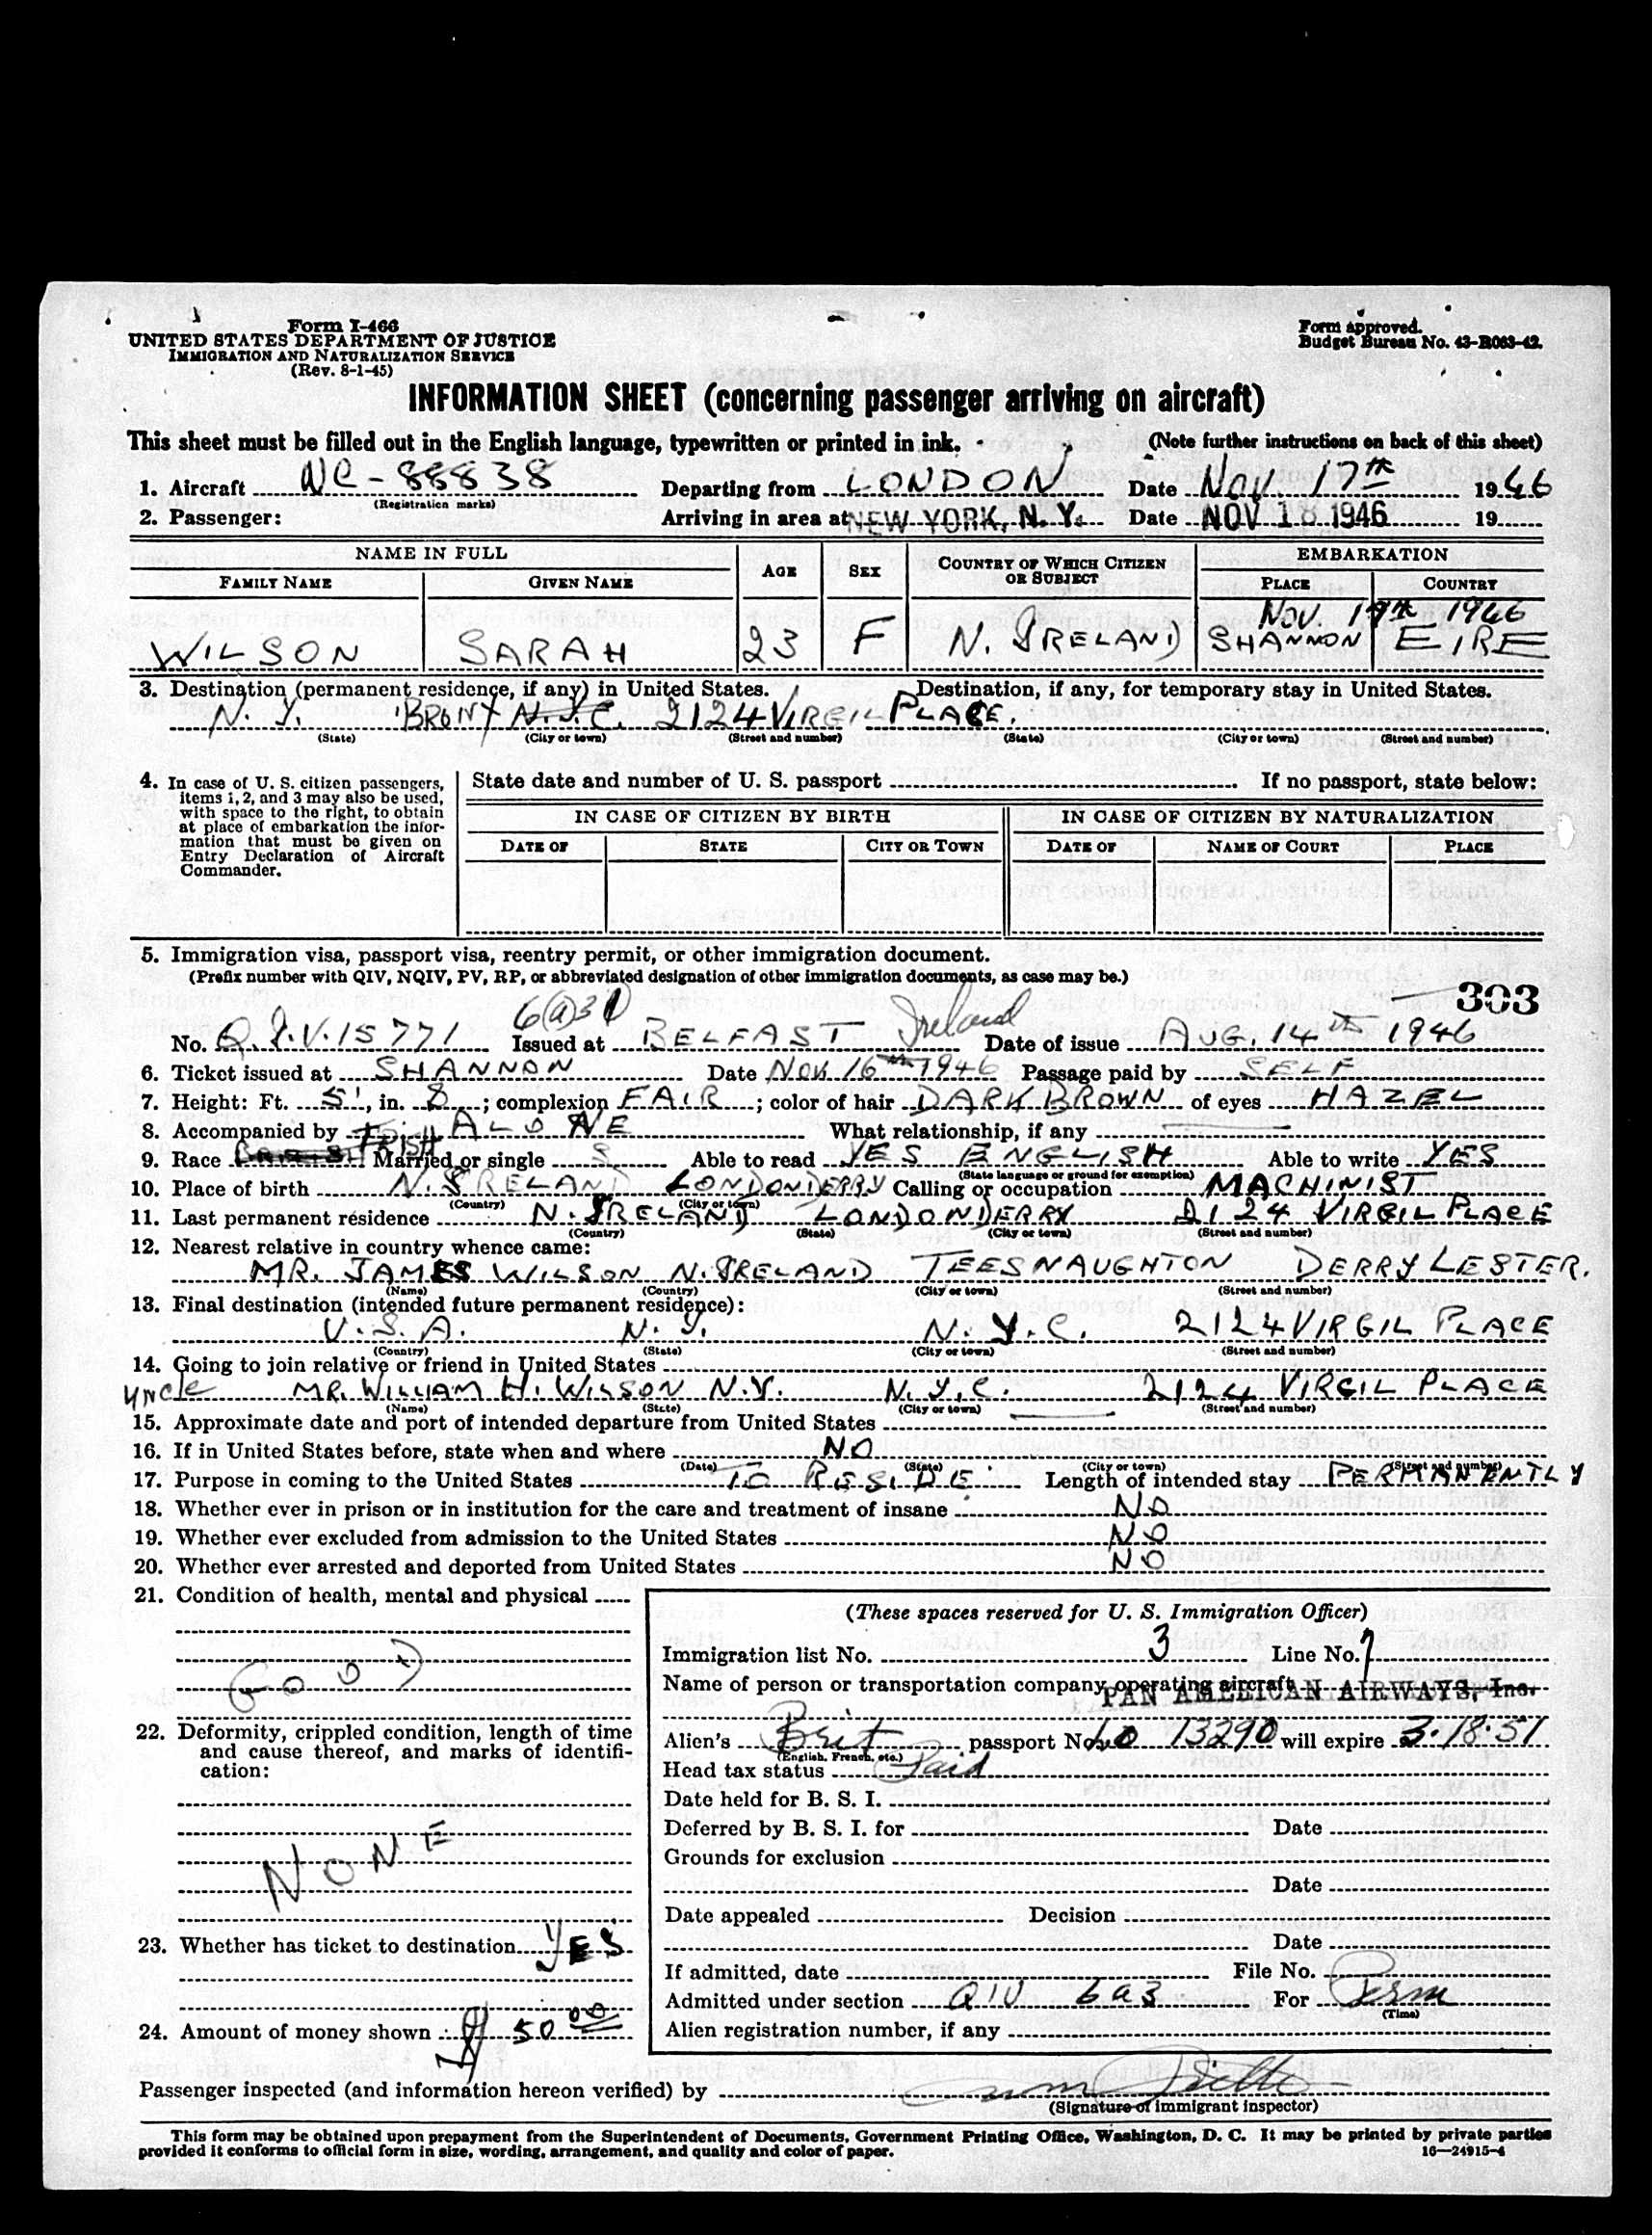 Form I-466
UNITED STATES DEPARTMENT OF JUSTICE
IMMIGRATION AND NATURALIZATION SERVICE
(Rev. 8-1-45)
Form approved.
Budget Bureau No. 43-R063-42.
INFORMATION SHEET (concerning passenger arriving on aircraft)
This sheet must be filled out in the English language, typewritten or printed in ink. (Note further instructions on back of this sheet)
1. Aircraft NC-88838 Departing from LONDON Date NOV. 17th 1946
(Registration marks)
2. Passenger: Arriving in area at NEW YORK, N. Y. Date NOV 18 1946 19
NAME IN FULL AGE SEX COUNTRY OF WHICH CITIZEN OR SUBJECT EMBARKATION
FAMILY NAME GIVEN NAME PLACE COUNTRY
NOV. 17th 1946
WILSON SARAH 23 F N. IRELAND SHANNON EIRE
3. Destination (permanent residence, if any) in United States. Destination, if any, for temporary stay in United States.
N. Y. BRONX N.Y.C. 2124 VIRGIL PLACE.
(State) (City or town) (Street and number) (State) (City or town) (Street and number)
4. In case of U. S. citizen passengers, items 1, 2, and 3 may also be used, with space to the right, to obtain at place of embarkation the information that must be given on Entry Declaration of Aircraft Commander.
State date and number of U. S. passport If no passport, state below:
IN CASE OF CITIZEN BY BIRTH IN CASE OF CITIZEN BY NATURALIZATION
DATE OF STATE CITY OR TOWN DATE OF NAME OF COURT PLACE
5. Immigration visa, passport visa, reentry permit, or other immigration document.
(Prefix number with QIV, NQIV, PV, RP, or abbreviated designation of other immigration documents, as case may be.)
303
6(a)3
No. Q.I.V. 15771 Issued at BELFAST Ireland Date of issue AUG. 14th 1946
6. Ticket issued at SHANNON Date NOV 16th 1946 Passage paid by SELF
7. Height: Ft. 5', in. 8; complexion FAIR; color of hair DARK BROWN of eyes HAZEL
8. Accompanied by ALONE What relationship, if any
9. Race IRISH Married or single S Able to read YES ENGLISH Able to write YES
(State language or ground for exemption)
10. Place of birth N. IRELAND LONDONDERRY Calling or occupation MACHINIST
(Country) (City or town)
11. Last permanent residence N. IRELAND LONDONDERRY 2124 VIRGIL PLACE
(Country) (State) (City or town) (Street and number)
12. Nearest relative in country whence came:
MR. JAMES WILSON N. IRELAND TEESNAUGHTON DERRYLESTER.
(Name) (Country) (City or town) (Street and number)
13. Final destination (intended future permanent residence):
U.S.A. N.Y. N.Y.C. 2124 VIRGIL PLACE
(Country) (State) (City or town) (Street and number)
14. Going to join relative or friend in United States
uncle MR. WILLIAM H. WILSON N.Y. N.Y.C. 2124 VIRGIL PLACE
(Name) (State) (City or town) (Street and number)
15. Approximate date and port of intended departure from United States
16. If in United States before, state when and where NO
(Date) (State) (City or town) (Street and number)
17. Purpose in coming to the United States TO RESIDE Length of intended stay PERMANENTLY
18. Whether ever in prison or in institution for the care and treatment of insane NO
19. Whether ever excluded from admission to the United States NO
20. Whether ever arrested and deported from United States NO
21. Condition of health, mental and physical
GOOD
22. Deformity, crippled condition, length of time and cause thereof, and marks of identification:
NONE
23. Whether has ticket to destination YES
24. Amount of money shown $ 50 00
(These spaces reserved for U. S. Immigration Officer)
Immigration list No. 3 Line No. 7
Name of person or transportation company operating aircraft
PAN AMERICAN AIRWAYS, Inc.
Alien's Brit passport No. LO 13290 will expire 3.18.51
(English, French, etc.)
Head tax status Paid
Date held for B. S. I.
Deferred by B. S. I. for Date
Grounds for exclusion
Date
Date appealed Decision
Date
If admitted, date File No.
Admitted under section QIV 6a3 For Perm
(Time)
Alien registration number, if any
Passenger inspected (and information hereon verified) by
(Signature of immigrant inspector)
This form may be obtained upon prepayment from the Superintendent of Documents, Government Printing Office, Washington, D. C. It may be printed by private parties
provided it conforms to official form in size, wording, arrangement, and quality and color of paper. 16—24915-4